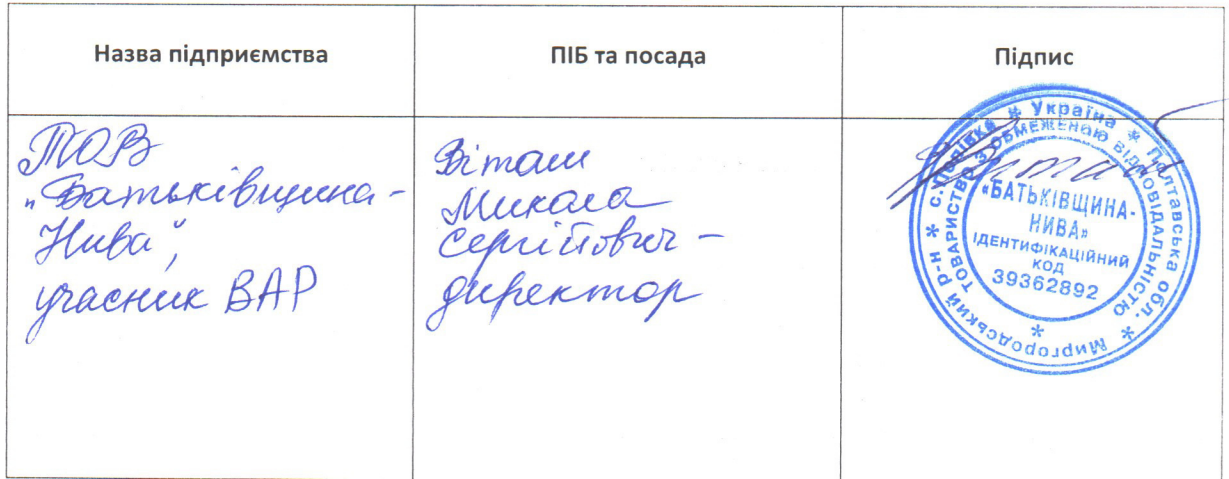 Назва підприємства
ПІБ та посада
Підпис
ТОВ
„Батьківщина-
Нива",
учасник ВАР
Віташ
Микола
Сергійович –
директор
* Україна * Полтавська обл. * Миргородський р-н * с.
ТОВАРИСТВО З ОБМЕЖЕНОЮ ВІДПОВІДАЛЬНІСТЮ
*
«БАТЬКІВЩИНА-
НИВА»
ІДЕНТИФІКАЦІЙНИЙ
КОД
39362892